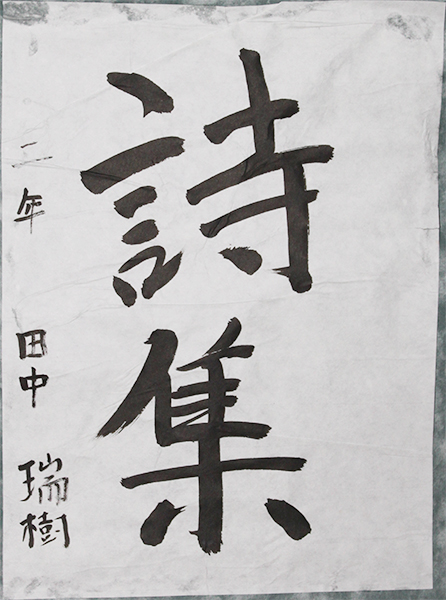 詩集
二年 田中 瑞樹